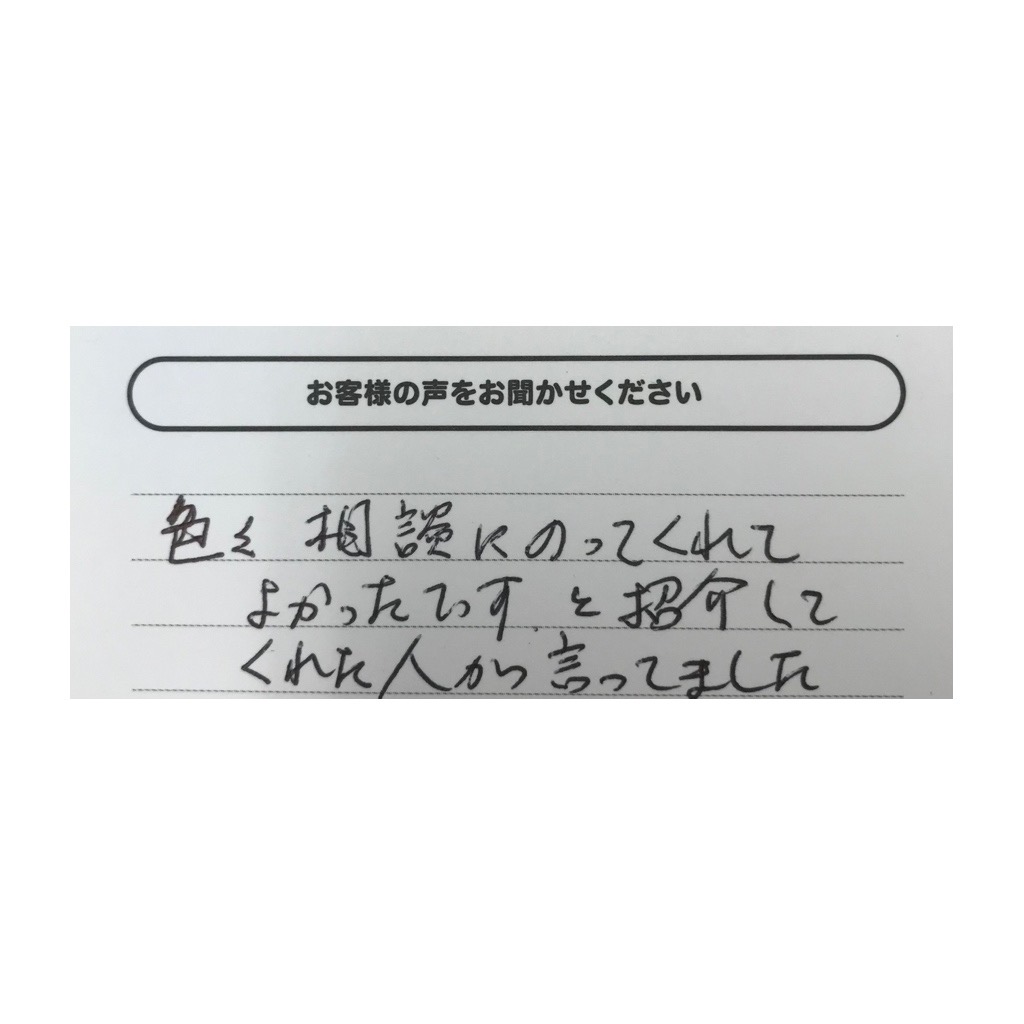 お客様の声をお聞かせください
色々 相談にのってくれて
よかったです。と紹介して
くれた人が言ってました